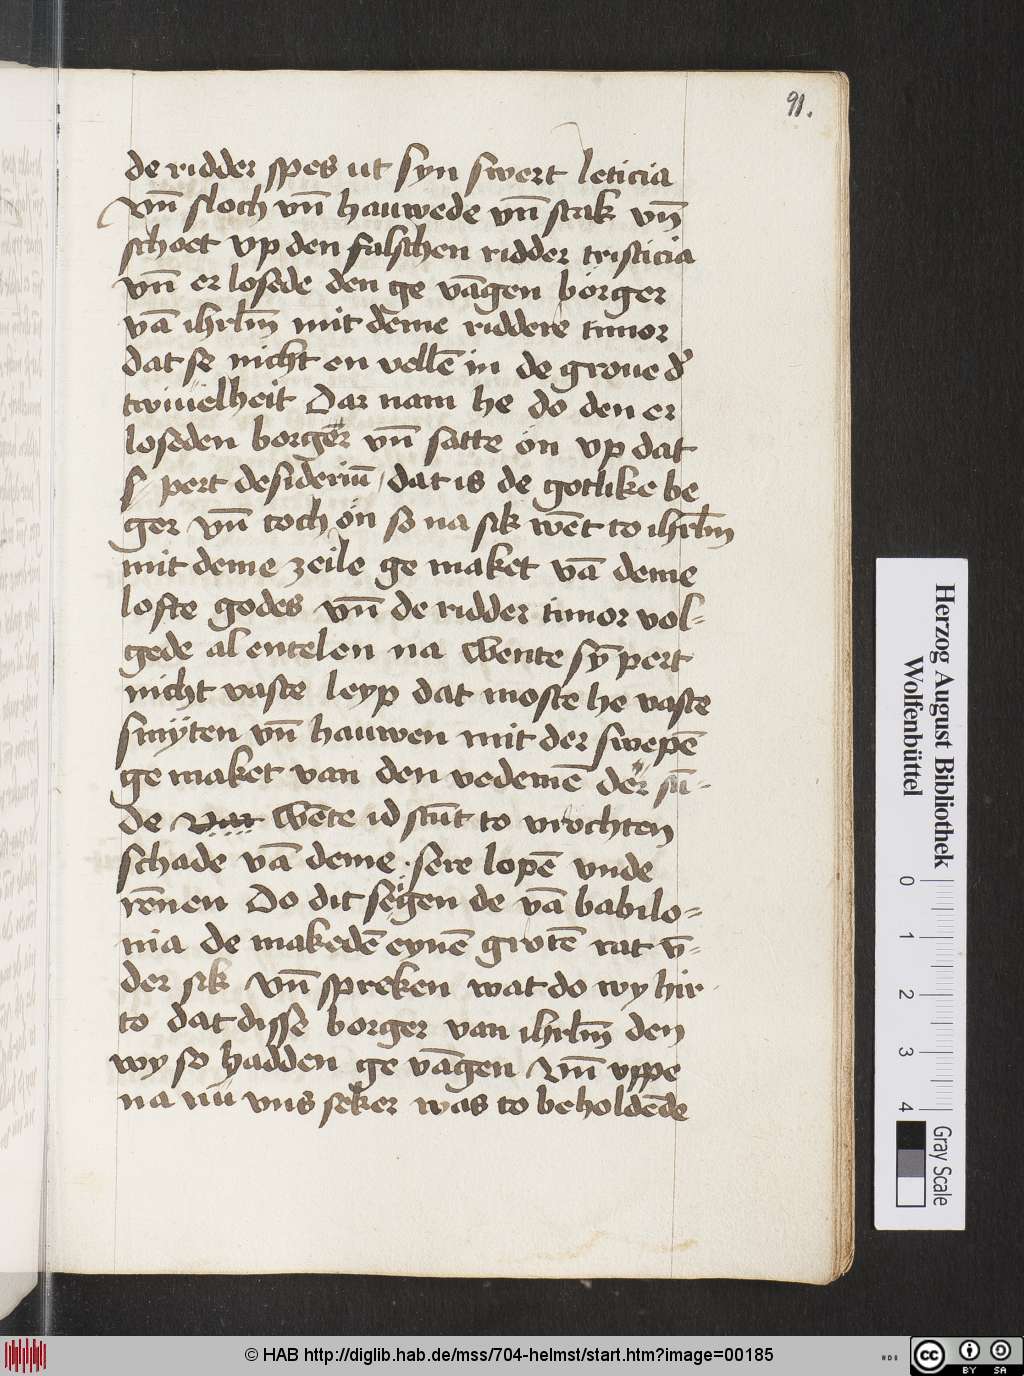 91.
de ridder spes ut syn swert leticia
vn̄ sloch vn̄ hauwede vn̄ strak vn̄
schoet vp den falschen ridder tristicia
vn̄ er losede den ge vāgen borger
vā ihrl̄m mit deme riddere timor
dat se nicht en vellē in de groue d̕
twiuelheit Dar nam he do den er
loseden borger vn̄ satte ön vp dat
s pert desideriū / dat is de gotlike be
ger vn̄ toch ön so na sik wēt to ihrl̄m
mit deme zeile ge maket vā deme
lofte godes vn̄ de ridder timor vol⸗
gede al entelen na wente sȳ pert
nicht vaste leyp dat moste he vaste
smÿten vn̄ hauwen mit der swepē
ge maket van den vedemē der sū⸗
de wēte id stūt to vrochten
schade vā deme sere lopē vnde
rēnen Do dit segen de vā babilo⸗
nia de makedē eynē grotē rat v̄⸗
der sik vn̄ spreken wat do wy hir
to dat disse borger van ihrl̄m den
wy so hadden ge vāgen vn̄ vppe
na nü vns seker was to beholdēde
Herzog August Bibliothek
Wolfenbüttel
0 1 2 3 4
Gray Scale
© HAB http://diglib.hab.de/mss/704-helmst/start.htm?image=00185
HAB
cc BY SA